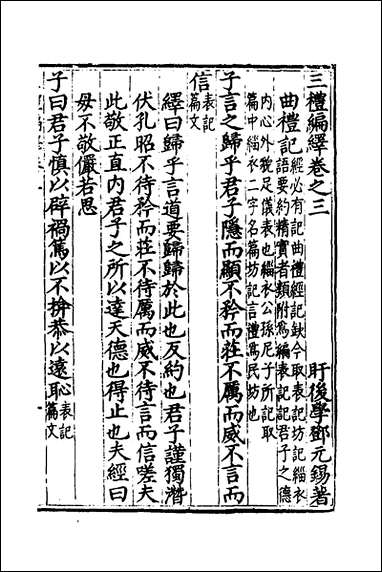 三禮編繹卷之三
盱後學鄧元錫著
曲禮記經必有記曲禮經記缺今取表記坊記緇衣
語要約精實者類附為編表記記君子之德
內心外貌足儀表也緇衣公孫尼子所記取
篇中緇衣二字名篇坊記言禮為民坊也
子言之歸乎君子隱而顯不矜而莊不厲而威不言而
信表記
篇文
繹曰歸乎言道要歸歸於此也反約也君子謹獨潛
伏孔昭不待矜而莊不待厲而威不待言而信嗟夫
此敬正直內君子之所以達天德也得止也夫經曰
毋不敬儼若思
子曰君子慎以辟禍篤以不揜恭以遠恥表記
篇文